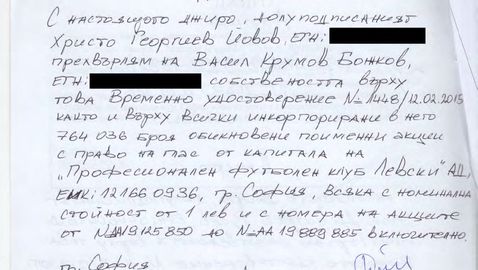 С настоящото джиро, долуподписаният
Христо Георгиев Йовов, ЕГН:
прехвърлям на Васил Крумов Божков,
ЕГН: собствеността върху
това Временно удостоверение №1448/12.02.2015
както и върху всички инкорпорирани в него
764 036 броя обикновени поименни акции
с право на глас от капитала на
"Професионален футболен клуб Левски" АД,
ЕИК: 121660936, гр. София, всяка с номинална
стойност от 1 лев и с номера на акциите
от №АА19125850 до №АА19889885 включително.
гр. София